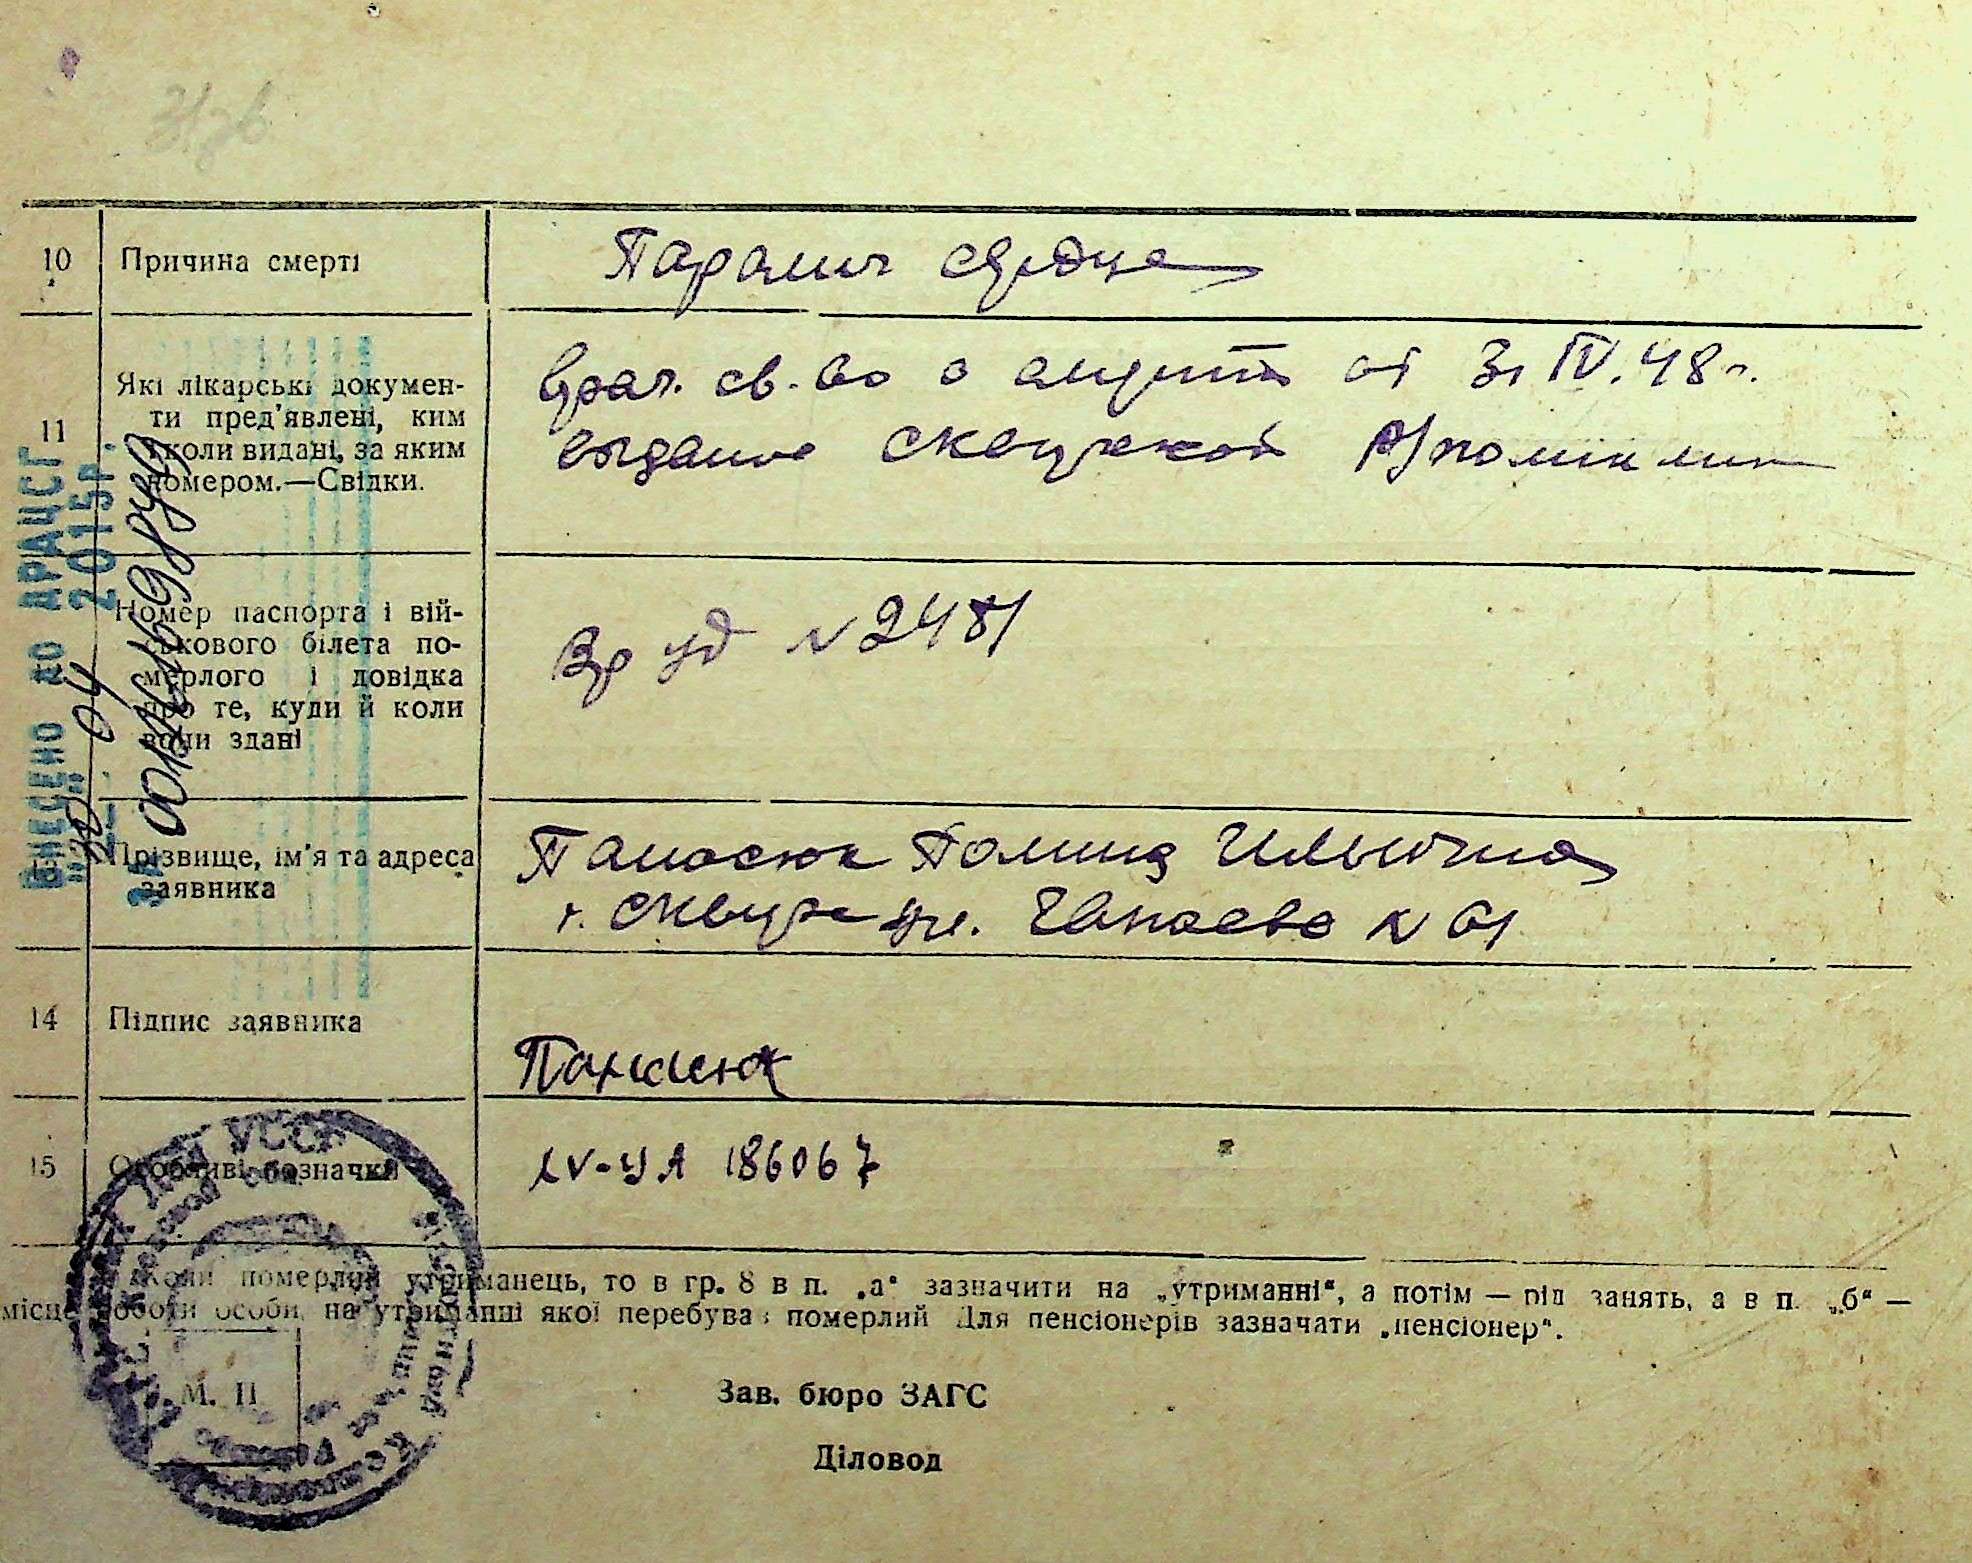 10 Причина смерті
Паралич сердца
11 Які лікарські докумен-
ти пред'явлені, ким
і коли видані, за яким
номером.—Свідки.
Врач. св-во о смерти от IV.48 г.
выдано Сквирской
Номер паспорта і вій-
ськового білета по-
мерлого і довідка
про те, куди й коли
вони здані
Вр уд №
Прізвище, ім'я та адреса
заявника
Панасюк Полина Ильинична
г. Сквира ул. Чапаева №
14 Підпис заявника
Панасюк
15 Особливі позначки
УА 186067
Коли померлий утриманець, то в гр. 8 в п. „а“ зазначити на „утриманні“, а потім — рід занять, а в п. „б“ —
місце роботи особи, на утриманні якої перебував померлий Для пенсіонерів зазначати „пенсіонер“.
М. П
Зав. бюро ЗАГС
Діловод
ВНЕСЕНО ДО ДРАЦСГ
30 04 2015р.
УССР